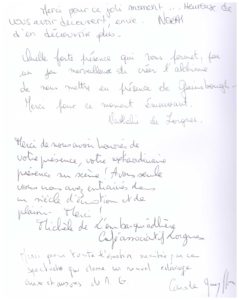 Merci pour ce joli moment... Heureuse de
vous avoir découvert, envie
d'en découvrir plus.
Quelle forte présence qui vous permet, par
un jeu merveilleux de créer l'alchimie
de nous mettre en présence de Gainsbourg
Merci pour ce moment émouvant.
de Lorgues
Merci de nous avoir honorés de
votre présence, votre extraordinaire
présence en scène! A vous seule
vous nous avez entraînés dans
un siècle d'émotion et de
plaisir. Merci!
Michèle de
Café associatif Lorgues
Merci pour toute l'émotion
spectacle qui donne un nouvel éclairage
aux chansons de